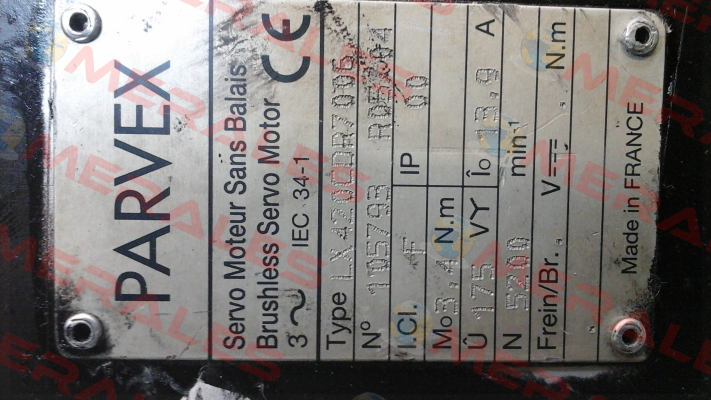 PARVEX
Servo Moteur Sans Balais
Brushless Servo Motor CE
3 ~ IEC 34-1
Type LX420EDR7006
N° 105793 R05A04
I.Cl. F IP 00
Mo 3,4 N.m Îo 13,9 A
Û 175 VY
N 5200 min-1
Frein/Br. , V , N.m
Made in FRANCE